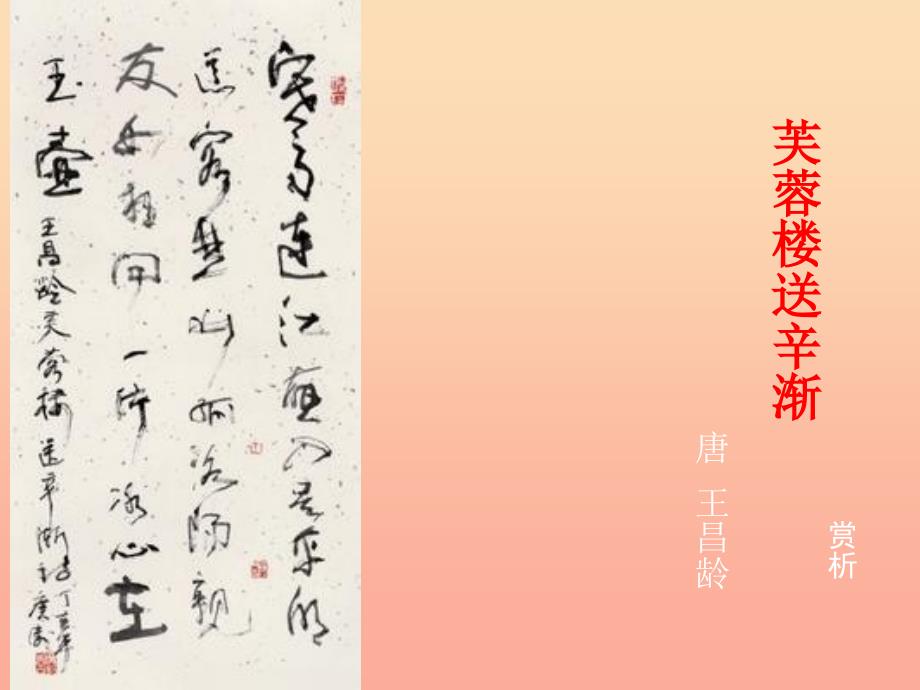 芙蓉楼送辛渐
唐 王昌龄
赏析
寒雨連江夜入吴平明
送客楚山孤洛陽親
友如相問一片冰心在
玉壺 王昌龄芙蓉樓送辛漸诗
丁亥年